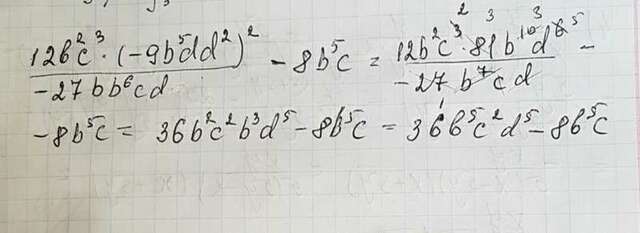 (12b²c³ · (-9b⁵dd²)²) / (-27bb⁶cd) - 8b⁵c = (12b²c³ · 81b¹⁰d⁶) / (-27b⁷cd) -
-8b⁵c = 36b²c²b³d⁵ - 8b⁵c = 36b⁵c²d⁵ - 8b⁵c